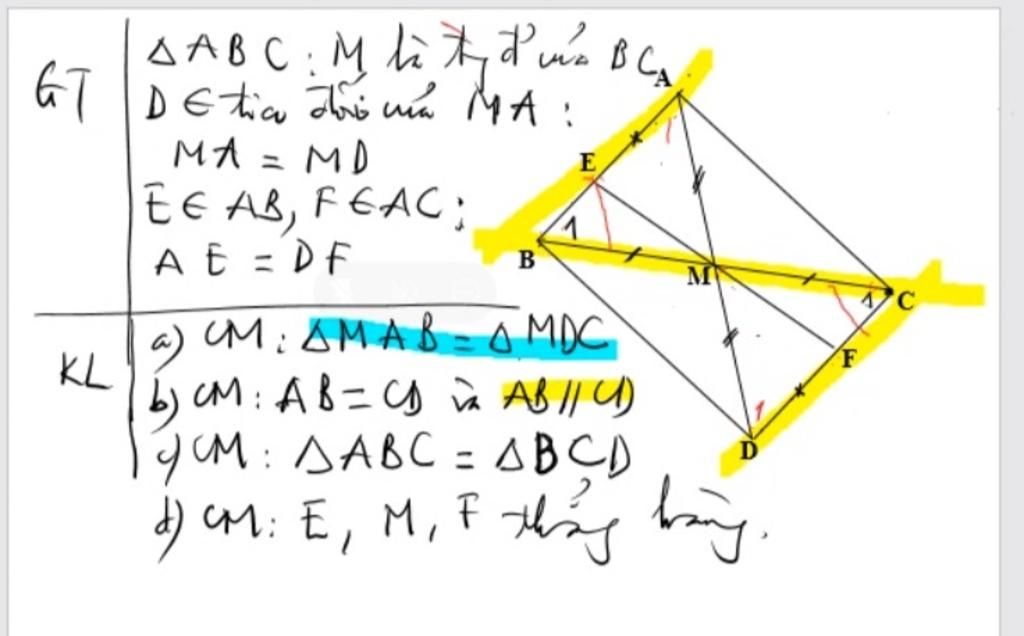 GT
△ABC : M là tr đ' của BC
D ∈ tia đối của MA :
MA = MD
E ∈ AB, F ∈ AC ;
AE = DF
KL
a) CM : △MAB = △MDC
b) CM : AB = CD và AB // CD
c) CM : △ABC = △BCD
d) CM : E, M, F thẳng hàng.
A
E
1
B
M
1
C
F
1
D